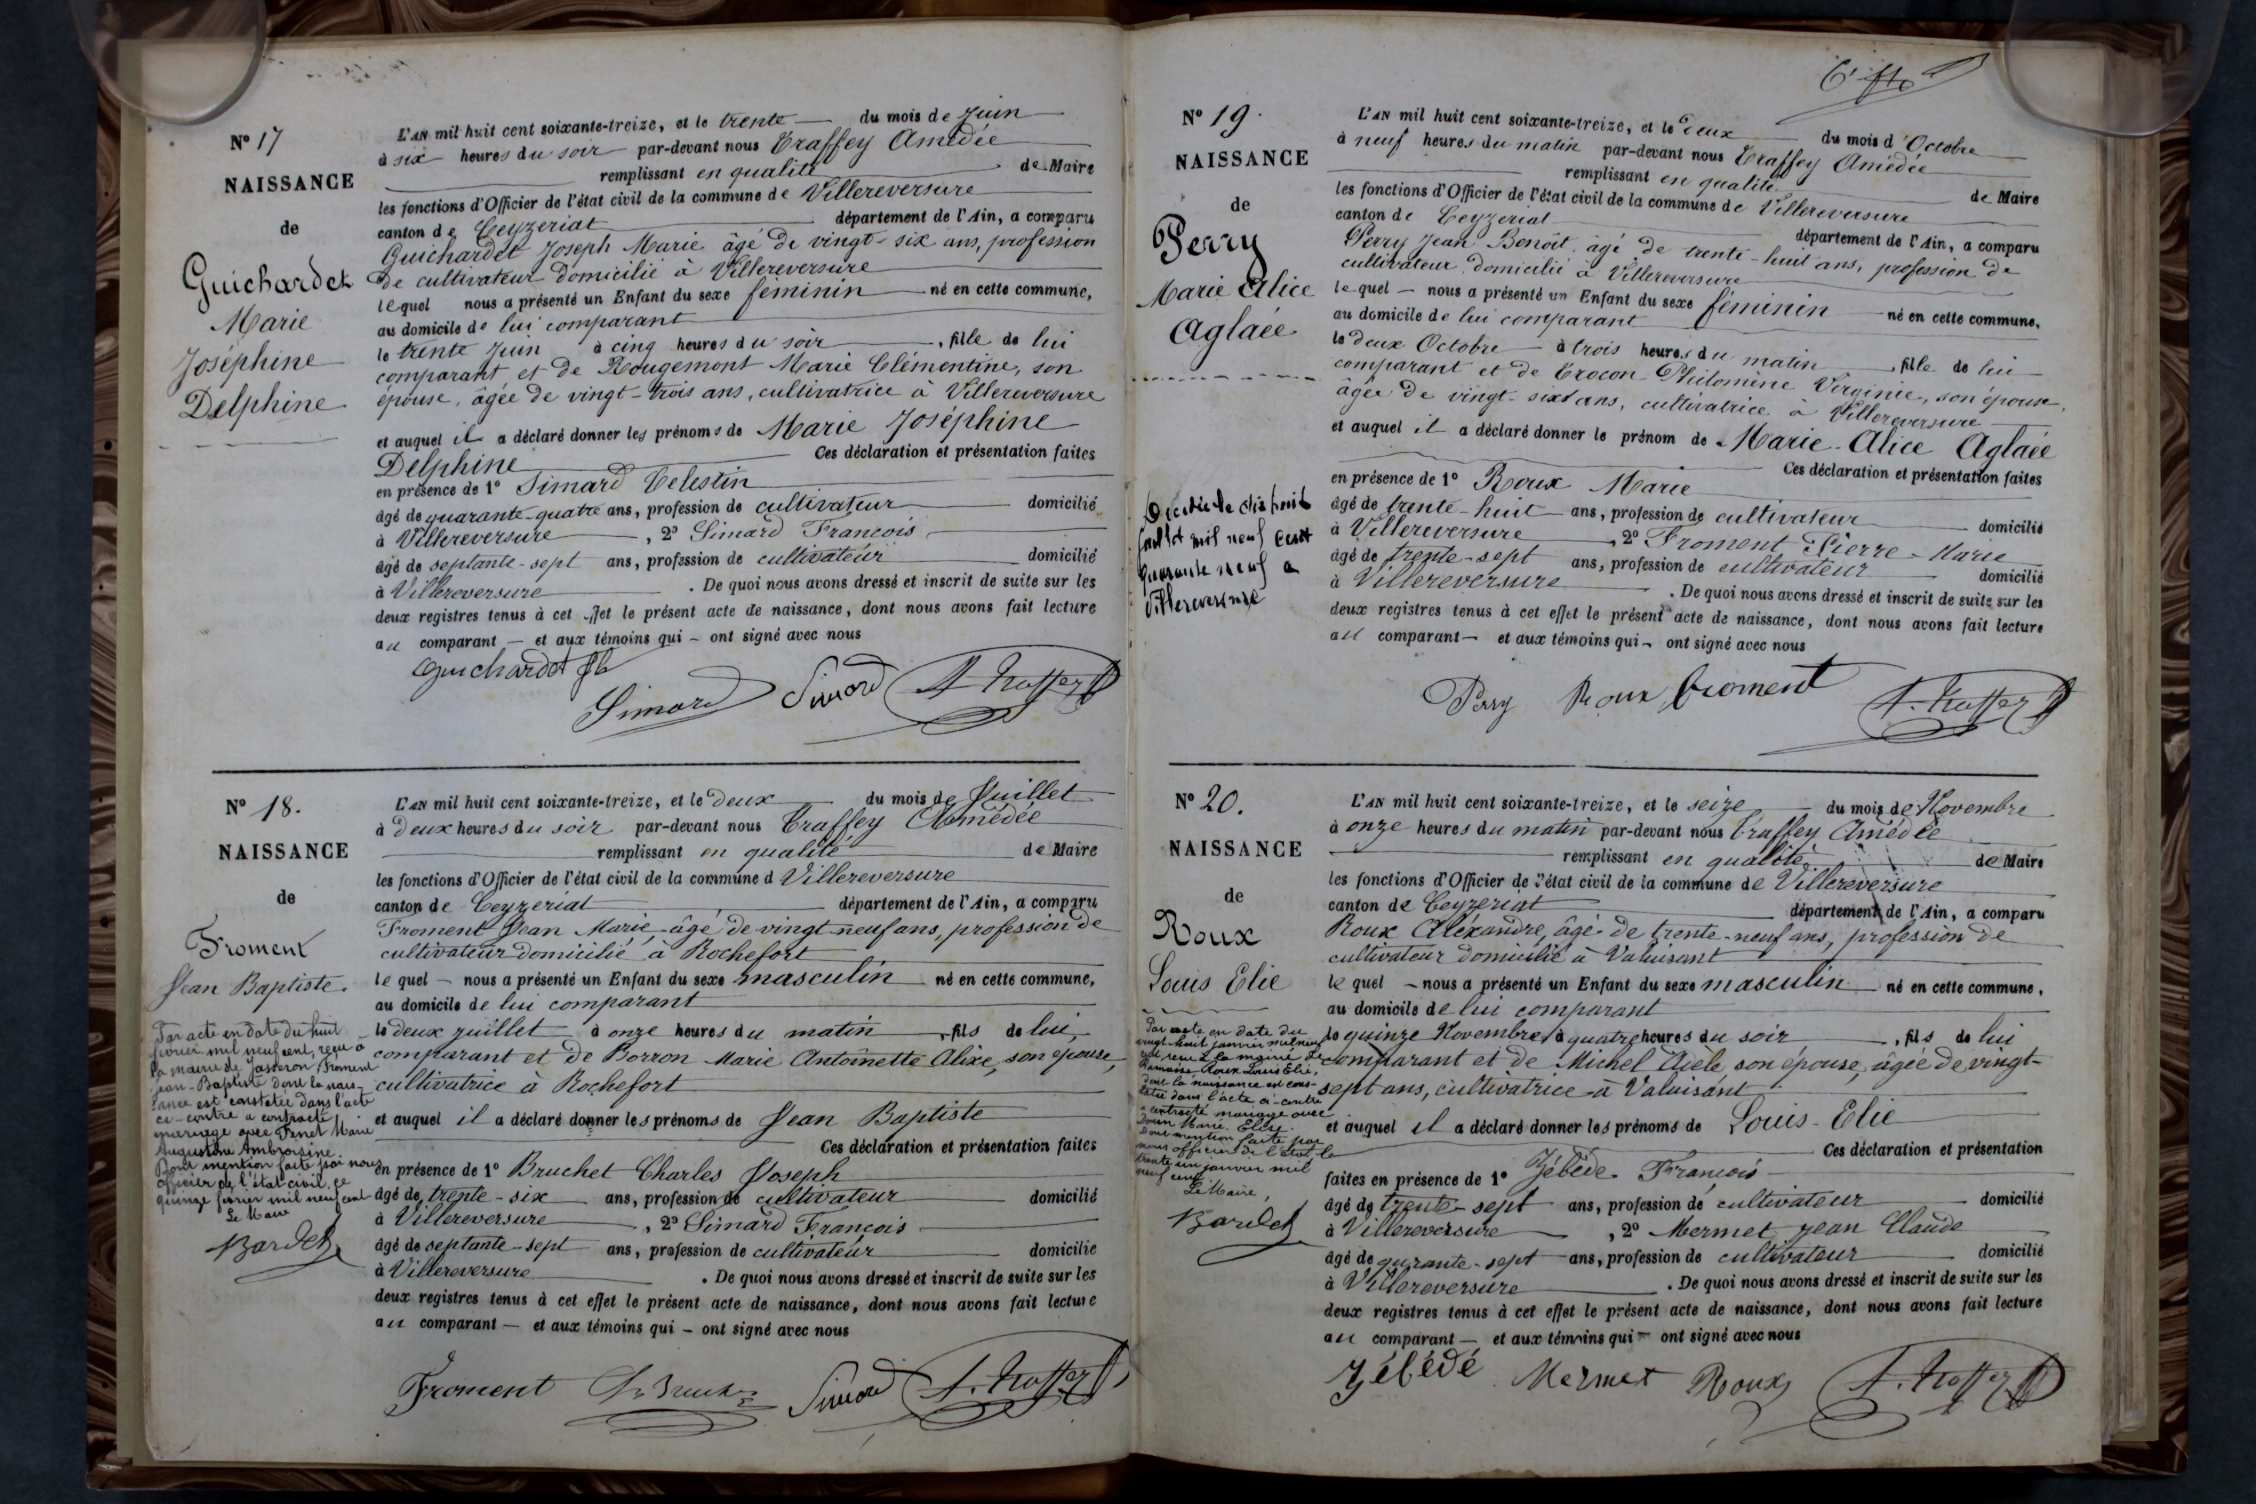 Nº 17
NAISSANCE
de
Guichardet
Marie
Joséphine
Delphine
L'AN mil huit cent soixante-treize, et le trente du mois de Juin
à six heures du soir par-devant nous Traffey Amédée
remplissant en qualité de Maire
les fonctions d'Officier de l'état civil de la commune de Villereversure
canton de Ceyzeriat département de l'Ain, a comparu
Guichardet Joseph Marie âgé de vingt-six ans, profession
de cultivateur domicilié à Villereversure
lequel nous a présenté un Enfant du sexe féminin né en cette commune,
au domicile de lui comparant
le trente Juin à cinq heures du soir, fille de lui
comparant et de Rougemont Marie Clémentine, son
épouse, âgée de vingt-trois ans, cultivatrice à Villereversure
et auquel il a déclaré donner les prénoms de Marie Joséphine
Delphine Ces déclaration et présentation faites
en présence de 1º Simard Celestin
âgé de quarante-quatre ans, profession de cultivateur domicilié
à Villereversure, 2º Simard François
âgé de septante-sept ans, profession de cultivateur domicilié
à Villereversure. De quoi nous avons dressé et inscrit de suite sur les
deux registres tenus à cet effet le présent acte de naissance, dont nous avons fait lecture
au comparant — et aux témoins qui – ont signé avec nous
Guichardet
Simard Simard A. Traffey
Nº 18.
NAISSANCE
de
Froment
Jean Baptiste.
Par acte en date du huit
février mil neuf cent, reçu à
la mairie de Jasseron, Froment
Jean-Baptiste dont la nais-
sance est constatée dans l'acte
ci-contre a contracté
mariage avec Penet Marie
Augustine Ambroisine.
Dont mention faite par nous
officier de l'état civil, le
quinze février mil neuf cent
Le Maire
Bardet
L'AN mil huit cent soixante-treize, et le deux du mois de Juillet
à deux heures du soir par-devant nous Traffey Amédée
remplissant en qualité de Maire
les fonctions d'Officier de l'état civil de la commune d Villereversure
canton de Ceyzeriat département de l'Ain, a comparu
Froment Jean Marie, âgé de vingt-neuf ans, profession de
cultivateur domicilié à Rochefort
le quel – nous a présenté un Enfant du sexe masculin né en cette commune,
au domicile de lui comparant
le deux juillet à onze heures du matin, fils de lui,
comparant et de Borron Marie Antoinette Alixe, son épouse,
cultivatrice à Rochefort
et auquel il a déclaré donner les prénoms de Jean Baptiste
Ces déclaration et présentation faites
en présence de 1º Bruchet Charles Joseph
âgé de trente-six ans, profession de cultivateur domicilié
à Villereversure, 2º Simard François
âgé de septante-sept ans, profession de cultivateur domicilié
à Villereversure. De quoi nous avons dressé et inscrit de suite sur les
deux registres tenus à cet effet le présent acte de naissance, dont nous avons fait lecture
au comparant — et aux témoins qui – ont signé avec nous
Froment Simard A. Traffey
Nº 19.
NAISSANCE
de
Perry
Marie Alice
Aglaée
Décédée le dix huit
Juillet mil neuf cent
quarante neuf à
Villereversure
L'AN mil huit cent soixante-treize, et le deux du mois d'Octobre
à neuf heures du matin par-devant nous Traffey Amédée
remplissant en qualité de Maire
les fonctions d'Officier de l'état civil de la commune de Villereversure
canton de Ceyzeriat département de l'Ain, a comparu
Perry Jean Benoît, âgé de trente-huit ans, profession de
cultivateur, domicilié à Villereversure
le quel – nous a présenté un Enfant du sexe féminin né en cette commune,
au domicile de lui comparant
le deux Octobre à trois heures du matin, fille de lui
comparant et de Crocon Philomène Virginie, son épouse,
âgée de vingt-six ans, cultivatrice à Villereversure
et auquel il a déclaré donner le prénom de Marie-Alice Aglaée
Ces déclaration et présentation faites
en présence de 1º Roux Marie
âgé de trente-huit ans, profession de cultivateur domicilié
à Villereversure, 2º Froment Pierre-Marie
âgé de trente-sept ans, profession de cultivateur domicilié
à Villereversure. De quoi nous avons dressé et inscrit de suite sur les
deux registres tenus à cet effet le présent acte de naissance, dont nous avons fait lecture
au comparant — et aux témoins qui – ont signé avec nous
Perry Roux froment A. Traffey
Nº 20.
NAISSANCE
de
Roux
Louis Elie
Par acte en date du
vingt-huit janvier mil neuf
cent reçu à la mairie de
Roux Louis Elie,
dont la naissance est cons-
tatée dans l'acte ci-contre
a contracté mariage avec
Marie Elise.
Dont mention faite par
nous officier de l'état le
trente un janvier mil
neuf cent
Le Maire,
Bardet
L'AN mil huit cent soixante-treize, et le seize du mois de Novembre
à onze heures du matin par-devant nous Traffey Amédée
remplissant en qualité de Maire
les fonctions d'Officier de l'état civil de la commune de Villereversure
canton de Ceyzeriat département de l'Ain, a comparu
Roux Aléxandre, âgé de trente-neuf ans, profession de
cultivateur domicilié à Valuisant
le quel – nous a présenté un Enfant du sexe masculin né en cette commune,
au domicile de lui comparant
le quinze Novembre à quatre heures du soir, fils de lui
comparant et de Michel Adele son épouse, âgée de vingt-
sept ans, cultivatrice à Valuisant
et auquel il a déclaré donner les prénoms de Louis-Elie
Ces déclaration et présentation
faites en présence de 1º Zébédé François
âgé de trente-sept ans, profession de cultivateur domicilié
à Villereversure, 2º Mermet Jean Claude
âgé de quarante-sept ans, profession de cultivateur domicilié
à Villereversure. De quoi nous avons dressé et inscrit de suite sur les
deux registres tenus à cet effet le présent acte de naissance, dont nous avons fait lecture
au comparant — et aux témoins qui – ont signé avec nous
Zébédé Mermet Roux A. Traffey